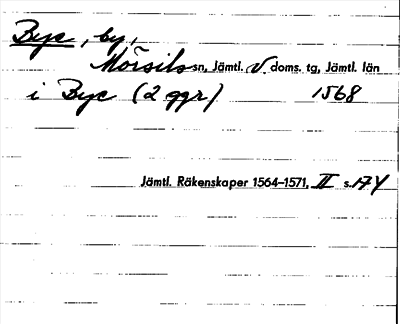 Bye, by,
Mörsils sn, Jämtl. V doms. tg, Jämtl. län
i Bye (2 ggr) 1568
Jämtl. Räkenskaper 1564–1571, II s. 174